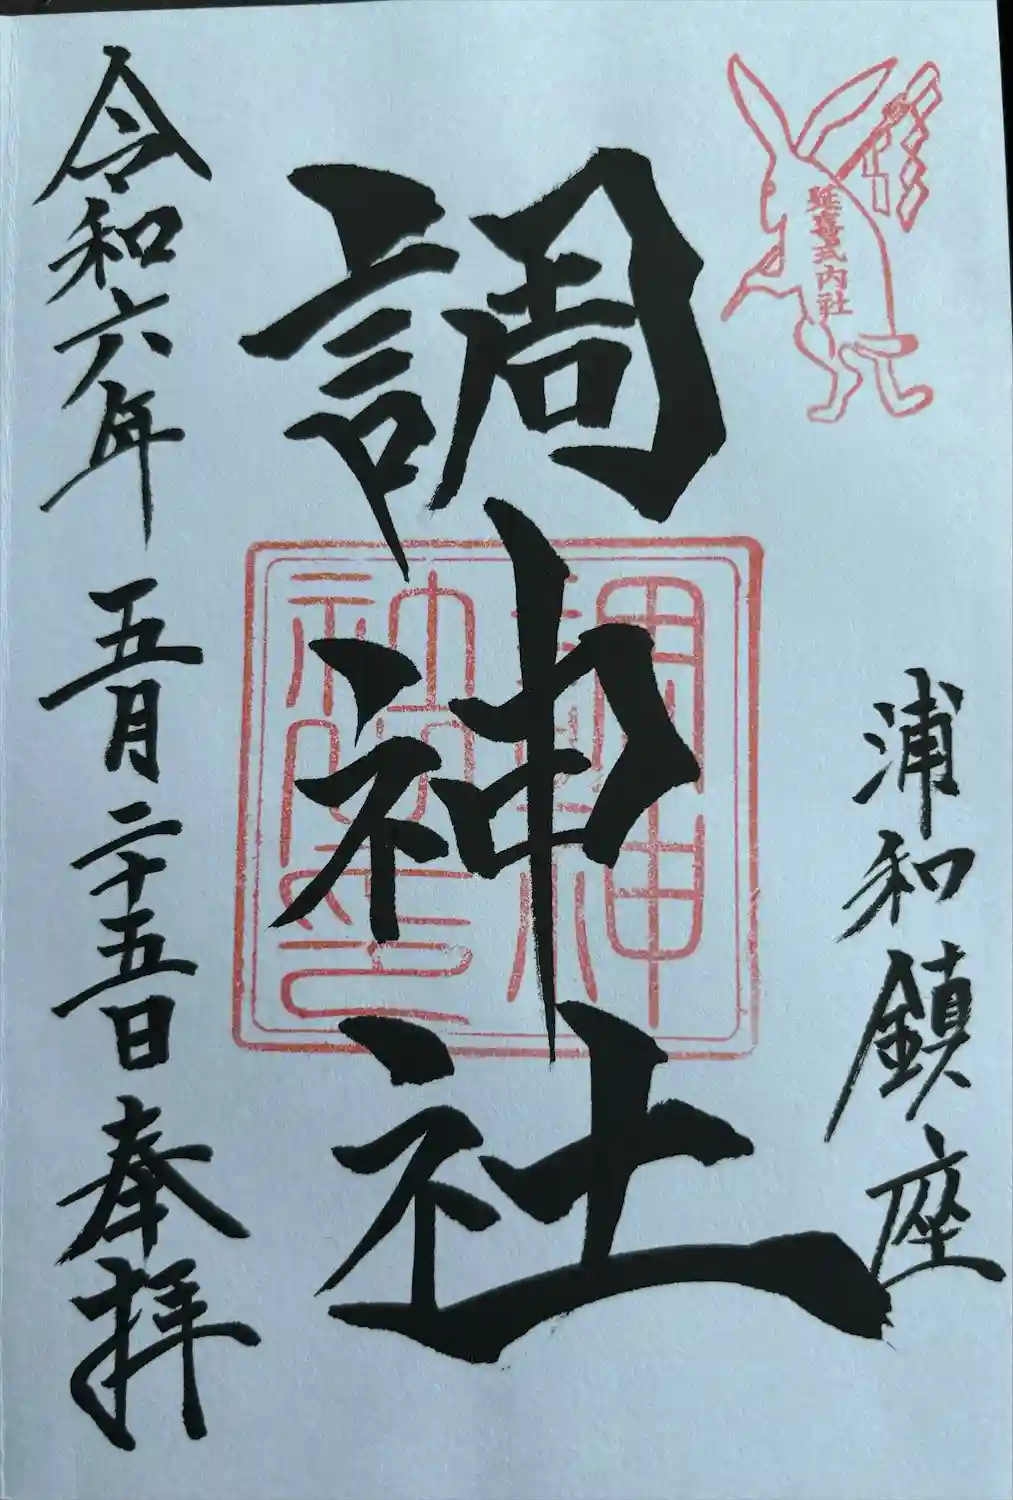 延喜式内社
浦和鎮座
調神社
調神
社印
令和六年 五月二十五日 奉拝